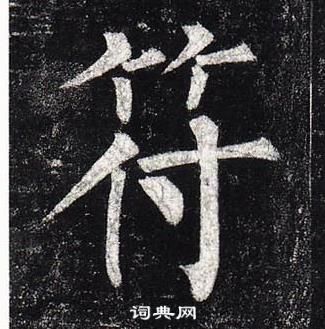 符
词典网